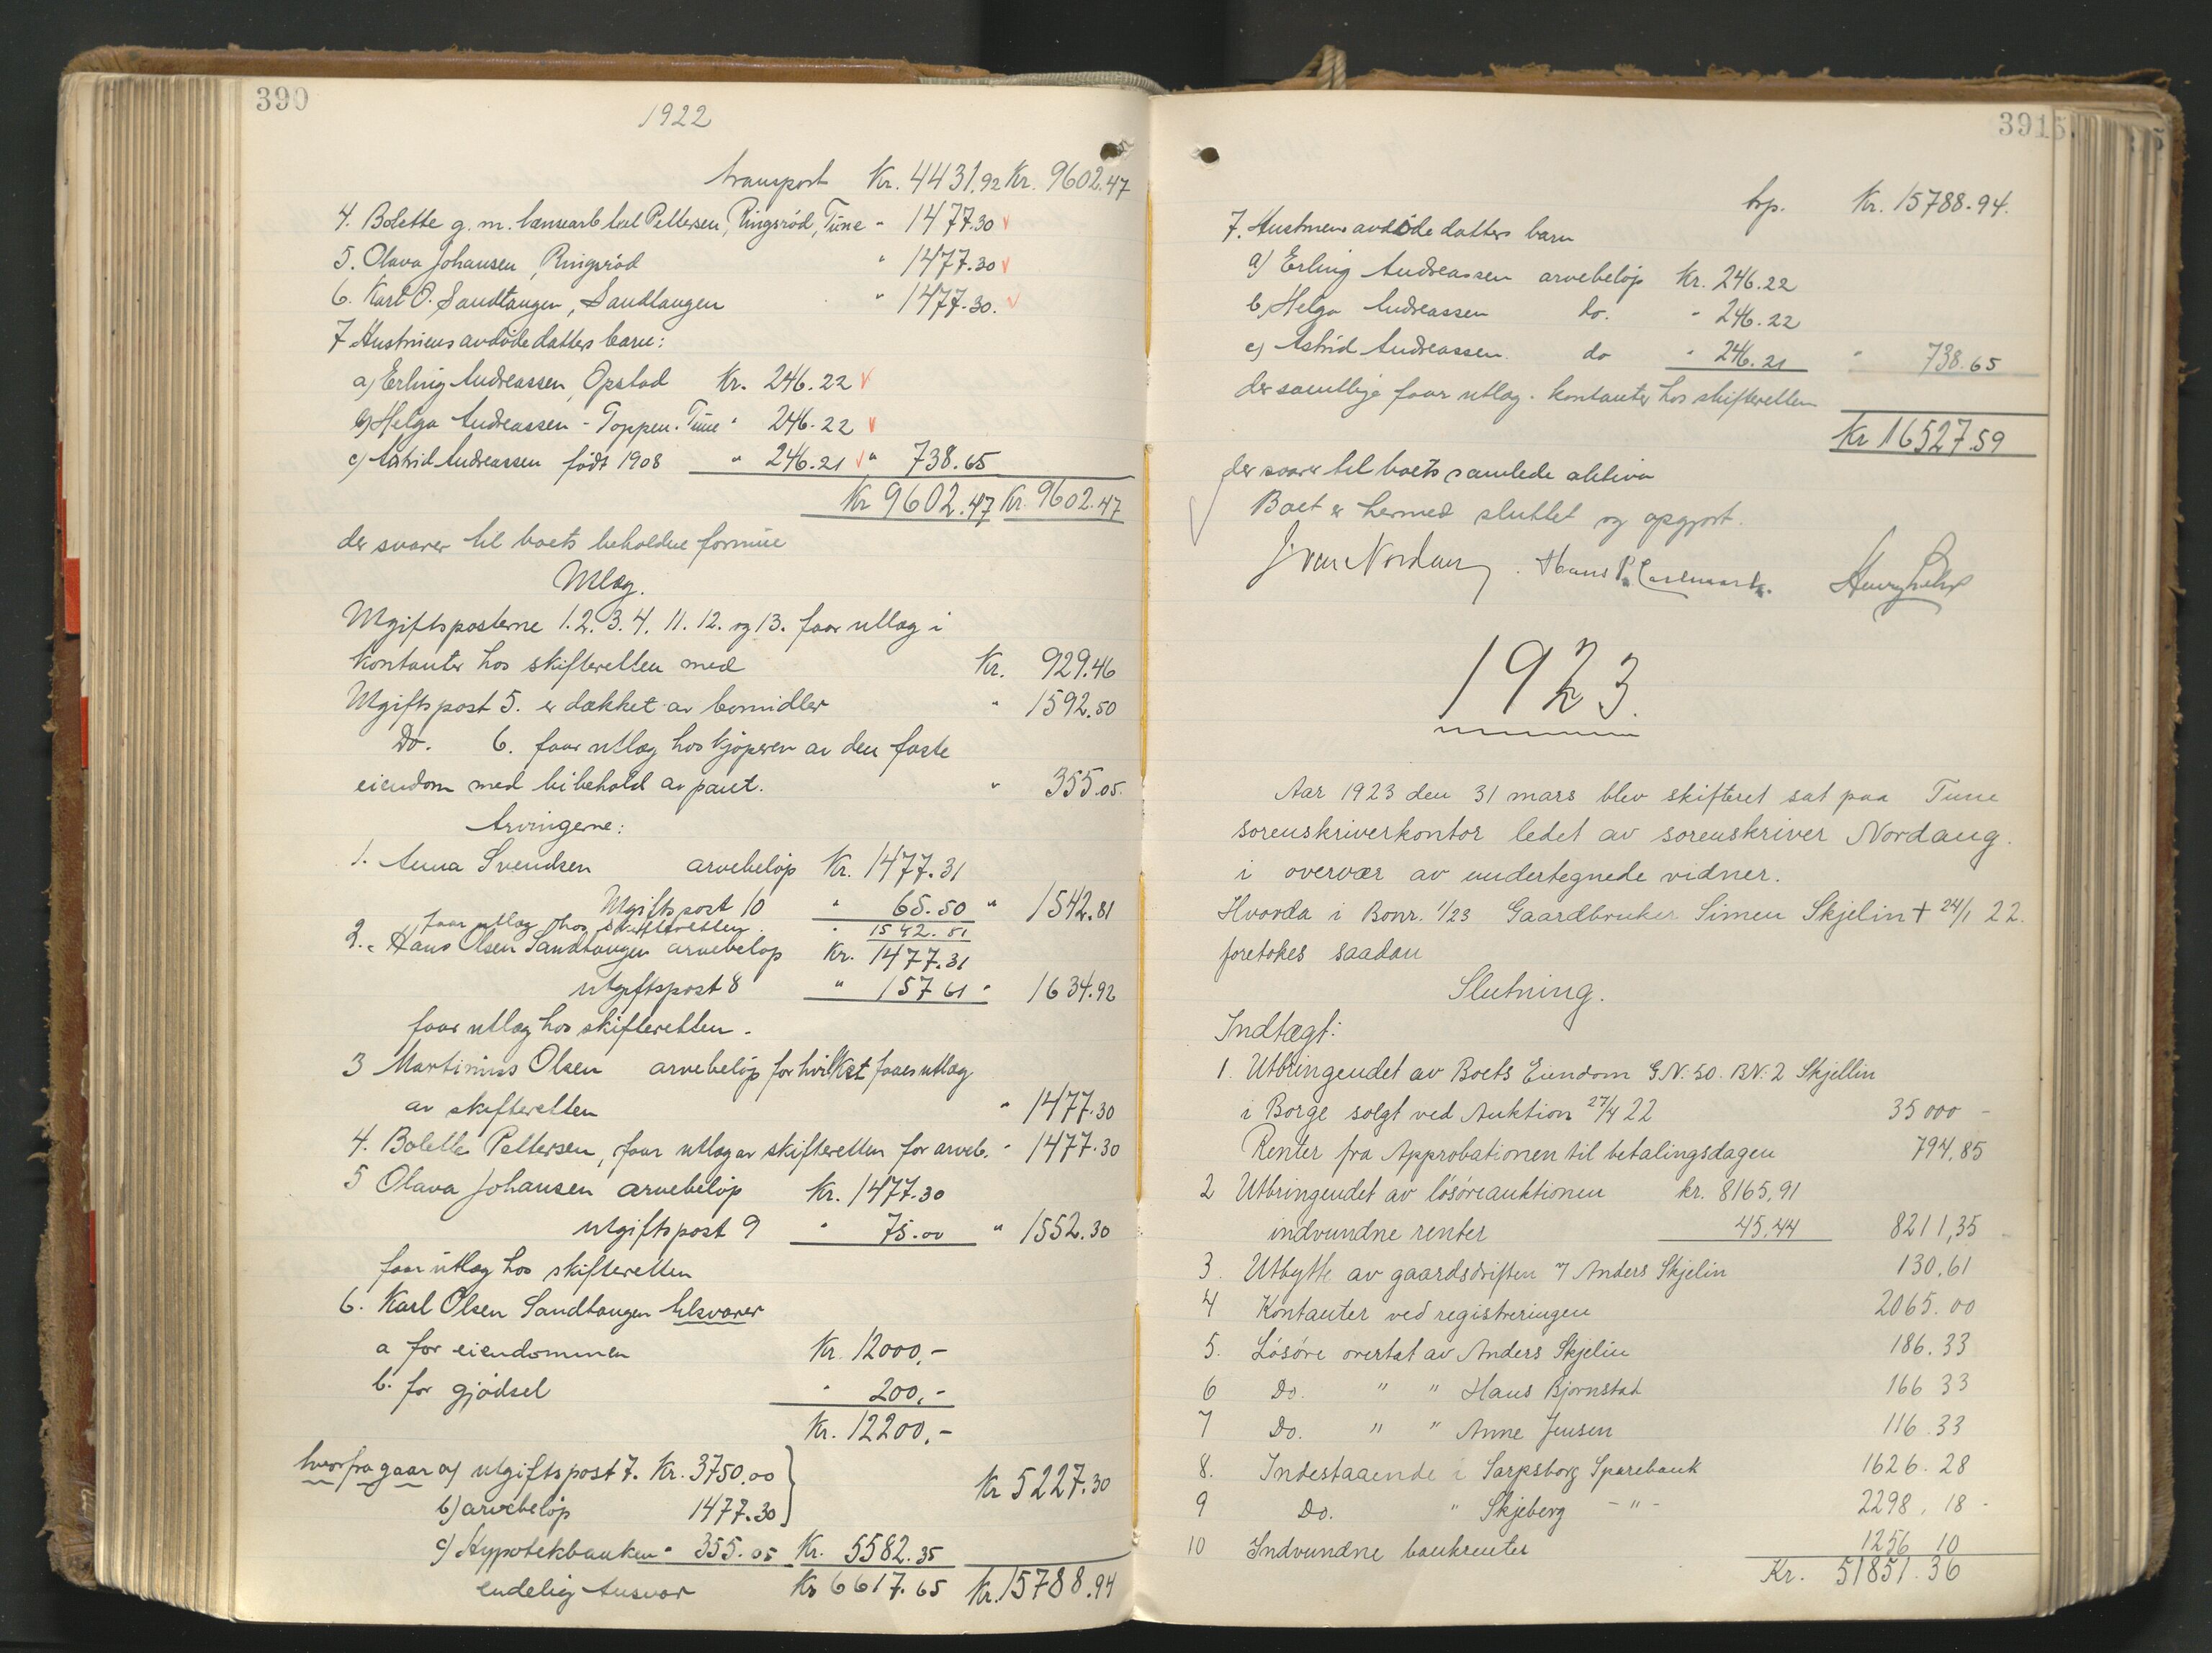 390
1922
transport Kr. 4431.92 Kr. 9602.47
4. Bolette g. m. Pettersen, Ringsrød, Tune " 1477.30
5. Olava Johansen, Ringsrød " 1477.30
6. Karl O. Sandtangen, Sandtangen " 1477.30.
7 Hustruens avdøde datters barn:
a) Erling Andreassen, Opstad Kr. 246.22
b) Helga Andreassen - Toppen. Tune " 246.22
c) Astrid Andreassen født 1908 " 246.21 " 738.65
Kr 9602.47 Kr. 9602.47
der svarer til boets beholdne formue
Utlæg.
Utgiftsposterne 1. 2. 3. 4. 11. 12. og 13. faar utlæg i
kontanter hos skifteretten med Kr. 929.46
Utgiftspost 5. er dækket av bomidler " 1592.50
Do. 6. faar utlæg hos kjøperen av den faste
eiendom med bibehold av pant. " 355.05.
Arvingerne:
1. Anna Svendsen arvebeløp Kr. 1477.31
Utgiftspost 10 " 65.50 " 1542.81
faar utlæg hos skifteretten. " 1542.81
2. Hans Olsen Sandtangen arvebeløp Kr. 1477.31
utgiftspost 8 " 157 61 " 1634.92
faar utlæg hos skifteretten.
3 Martinius Olsen arvebeløp for hvilket faaes utlæg
av skifteretten " 1477.30
4. Bolette Pettersen, faar utlæg av skifteretten for arveb. " 1477.30
5 Olava Johansen arvebeløp Kr. 1477.30
utgiftspost 9 " 75.00 " 1552.30
faar utlæg hos skifteretten
6. Karl Olsen Sandtangen tilsvarer
a for eiendommen Kr. 12000,-
b. for gjødsel " 200,-
Kr. 12200,-
hvorfra gaar a) utgiftspost 7. Kr. 3750.00
b) arvebeløp 1477.30 Kr 5227.30
c) Hypotekbanken " 355.05 Kr. 5582.35
endelig Ansvar Kr 6617.65 Kr. 15788.94
391
trp. Kr. 15788.94.
7. Hustruens avdöde datters barn
a) Erling Andreassen arvebeløp Kr. 246.22
b) Helga Andreassen do. " 246.22
c) Astrid Andreassen. do " 246.21 " 738.65
der samtlige faar utlæg i kontanter hos skifteretten
Kr 16527.59
der svarer til boets samlede aktiva
Boet er hermed sluttet og opgjort.
Nordaug. Hans
1923.
Aar 1923 den 31 mars blev skifteret sat paa Tune
sorenskriverkontor ledet av sorenskriver Nordaug.
i overvær av undertegnede vidner.
Hvorda i Bonr. 1/23 Gaardbruker Simen Skjelin + 24/1 22.
foretokes saadan
Slutning.
Indtægt:
1. Utbringendet av Boets Eiendom G.N. 50. B.N. 2 Skjellin
i Borge solgt ved Auktion 27/4 22 35 000 -
Renter fra Approbationen til betalingsdagen 794,85
2 Utbringendet av løsøreauktionen kr. 8165,91
indvundne renter 45.44 8211,35
3. Utbytte av gaardsdriften v/ Anders Skjelin 130.61
4 Kontanter ved registreringen 2065.00
5. Løsøre overtat av Anders Skjelin 186.33
6 Do. " " Hans Bjørnstad 166 33
7 Do. " " Anne Jensen 116.33
8. Indestaaende i Sarpsborg Sparebank 1626.28
9 Do. " Skjeberg - " - 2298,18 -
10 Indvundne bankrenter 1256 10
Kr. 51851.36